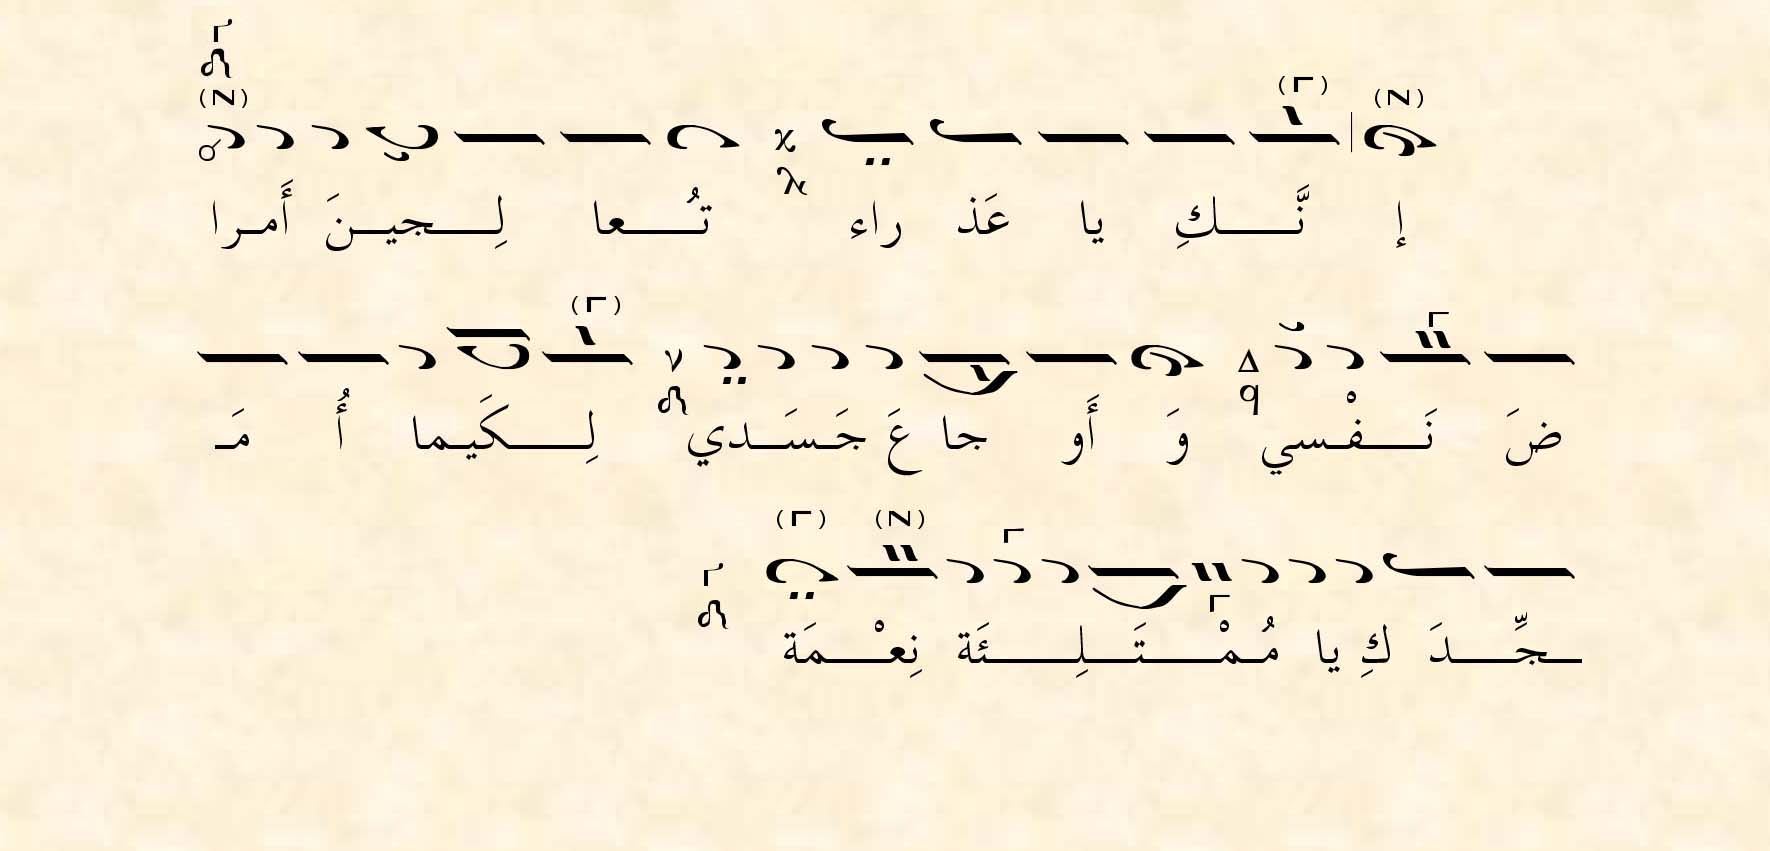 إِ نَّـــكِ يا عَذ راء تُـــعا لِـــجيـنَ أَمـرا
ضَ نَـــفْـسي وَ أَو جا عَ جَـسَـدي لِـــكَيـما أُ مَـ
ـجِّـــدَ كِ يا مُـمْـــتَـــلِـــئَة نِعْـــمَة